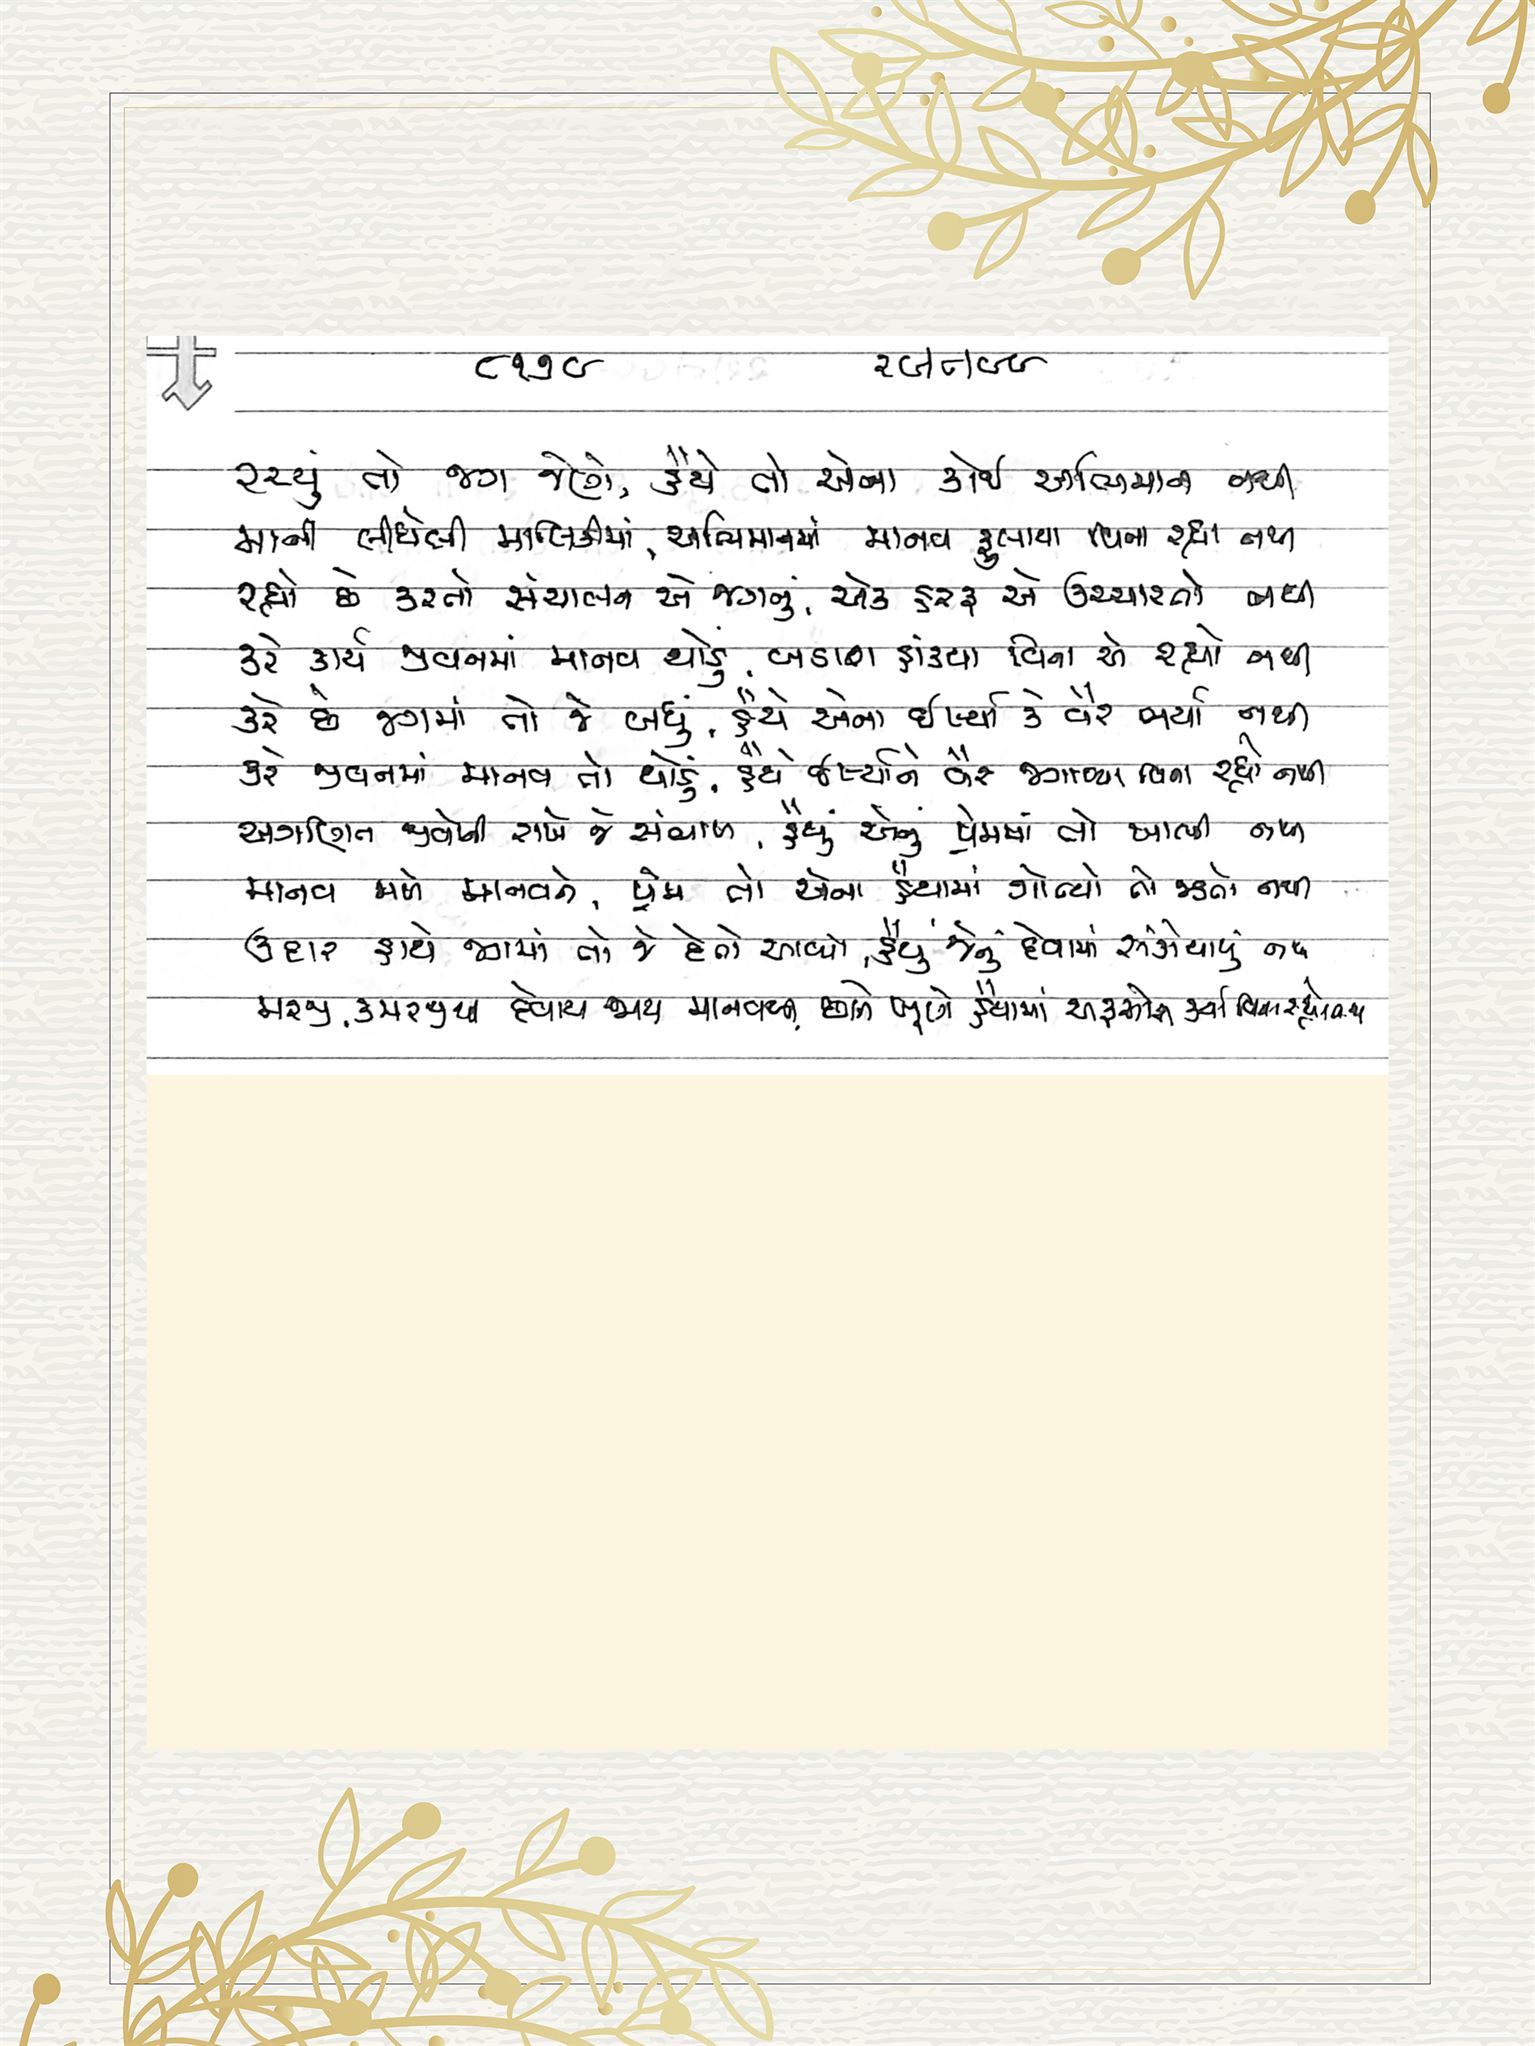 ૮૧૭૯
રચ્યું તો જગ જેણે, હૈયે તો એના કોઈ અભિમાન નથી
માની લીધેલી માલિકીમાં, અભિમાનમાં માનવ ફુલાયા વિના રહ્યા નથી
રહ્યો છે કરતો સંચાલન એ જગનું, એક હરફ એ ઉચ્ચારતો નથી
કરે કાર્ય જીવનમાં માનવ થોડું, બડાશ હાંક્યા વિના એ રહ્યો નથી
કરે છે જગમાં તો જે બધું, હૈયે એના ઈર્ષ્યા કે વૈર ભર્યા નથી
કરે જીવનમાં માનવ તો થોડું, હૈયે ઈર્ષ્યાને વૈર જગાવ્યા વિના રહ્યો નથી
અગણિત જીવોની રાખે જે સંભાળ, હૈયું એનું પ્રેમમાં તો ખાલી નથી
માનવ મળે માનવને, પ્રેમ તો એના હૈયામાં ગોત્યો તો જડતો નથી
ઉદાર હાથે જગમાં તો જે દેતો આવ્યો, હૈયું જેનું દેવામાં સંકોચાયું નથી
મરજી, કમરજીથી દેવાય જાય માનવથી, છાને ખૂણે હૈયામાં અફસોસ કર્યા વિના રહ્યો નથી